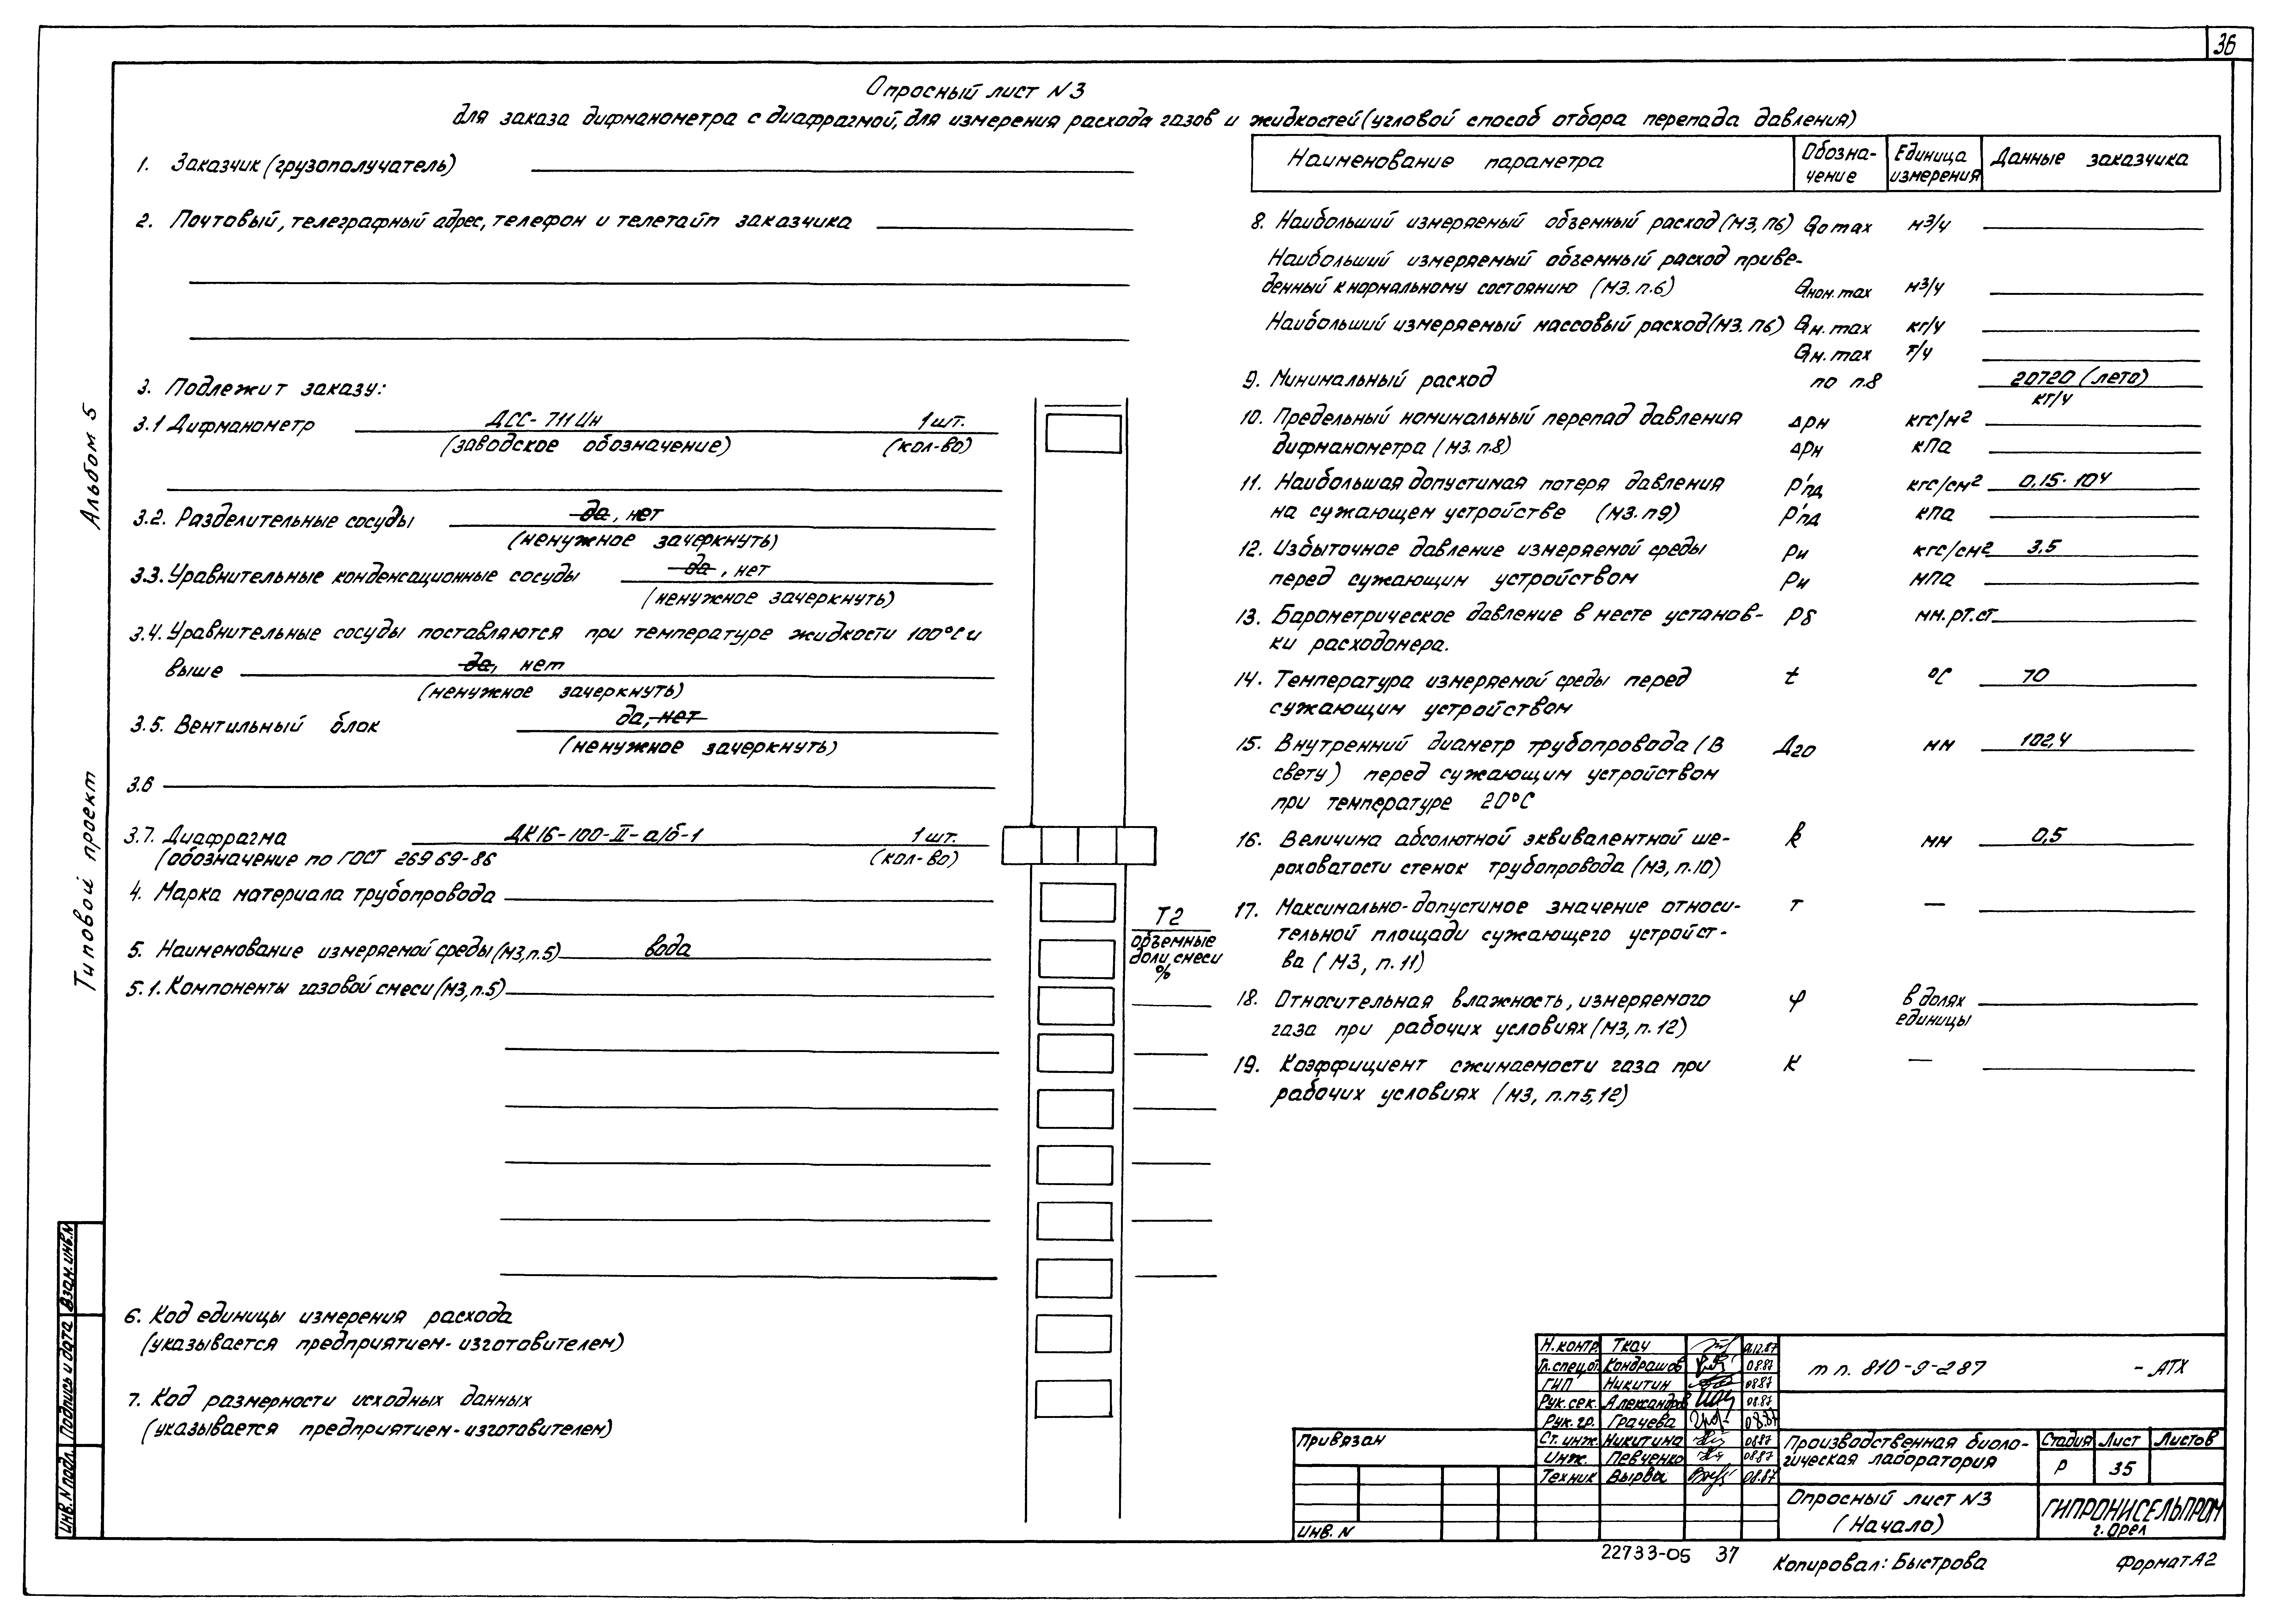 36
Опросный лист N3
для заказа дифманометра с диафрагмой, для измерения расхода газов и жидкостей (угловой способ отбора перепада давления)
1. Заказчик (грузополучатель)
2. Почтовый, телеграфный адрес, телефон и телетайп заказчика
3. Подлежит заказу:
3.1 Дифманометр ДСС-711Ин 1 шт.
(заводское обозначение) (кол-во)
3.2. Разделительные сосуды да, нет
(ненужное зачеркнуть)
3.3. Уравнительные конденсационные сосуды да, нет
(ненужное зачеркнуть)
3.4. Уравнительные сосуды поставляются при температуре жидкости 100°С и
выше да, нет
(ненужное зачеркнуть)
3.5. Вентильный блок да, нет
(ненужное зачеркнуть)
3.6
3.7. Диафрагма ДК16-100-II-а/б-1 1 шт.
(обозначение по ГОСТ 26969-86 (кол-во)
4. Марка материала трубопровода
5. Наименование измеряемой среды (М3, п.5) вода
5.1. Компоненты газовой смеси (М3, п.5)
Т2
объемные
доли, смеси
%
6. Код единицы измерения расхода
(указывается предприятием-изготовителем)
7. Код размерности исходных данных
(указывается предприятием-изготовителем)
Наименование параметра
Обозна-
чение
Единица
измерения
Данные заказчика
8. Наибольший измеряемый объемный расход (М3, п6) Qо max м3/ч
Наибольший измеряемый объемный расход приве-
денный к нормальному состоянию (М3. п.6) Qном. max м3/ч
Наибольший измеряемый массовый расход (М3. п6) Qм. max кг/ч
Qм. max т/ч
9. Минимальный расход по п.8 20720 (лето)
кг/ч
10. Предельный номинальный перепад давления ΔРн кгс/м2
дифманометра (М3. п.8) ΔРн кПа
11. Наибольшая допустимая потеря давления Р'пд кгс/см2 0,15·104
на сужающем устройстве (М3. п9) Р'пд кПа
12. Избыточное давление измеряемой среды Ри кгс/см2 3,5
перед сужающим устройством Ри МПа
13. Барометрическое давление в месте установ- Рб мм.рт.ст.
ки расходомера.
14. Температура измеряемой среды перед t °С 70
сужающим устройством
15. Внутренний диаметр трубопровода (в Д20 мм 102,4
свету) перед сужающим устройством
при температуре 20°С
16. Величина абсолютной эквивалентной ше- k мм 0,5
роховатости стенок трубопровода (М3, п.10)
17. Максимально-допустимое значение относи- т —
тельной площади сужающего устройст-
ва (М3, п.11)
18. Относительная влажность, измеряемого φ в долях
газа при рабочих условиях (М3, п.12) единицы
19. Коэффициент сжимаемости газа при К —
рабочих условиях (М3, п.п5,12)
Альбом 5
Типовой проект
Взам. инв. N
Подпись и дата
Инв. N подл.
Н.контр. Ткач 01.12.87
Гл.спец.от. Кондрашов 08.87
ГИП Никитин 08.87
Рук. сек. Александров 08.87
Рук. гр. Грачева 08.87
Ст. инж. Никитина 08.87
Инж. Певченко 08.87
Техник Вырва 08.87
т п. 810-9-287 - АТХ
Привязан
Инв. N
Производственная биоло-
гическая лаборатория
Стадия Лист Листов
Р 35
Опросный лист N3
(Начало)
ГИПРОНИСЕЛЬПРОМ
г. Орел
22733-05 37
Копировал: Быстрова
Формат А2